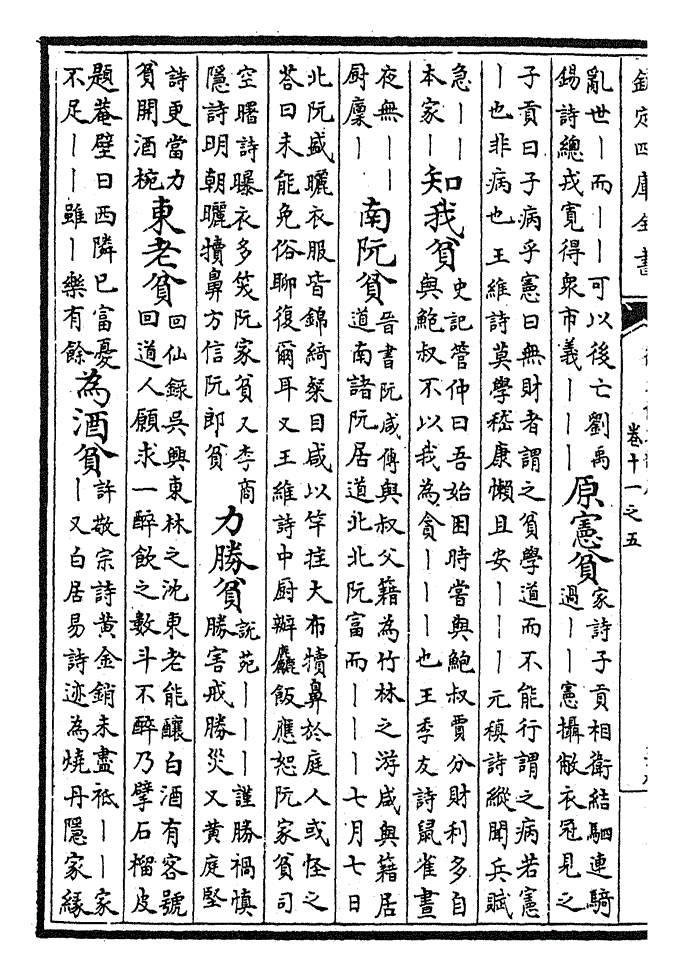 欽定四庫全書
卷十一之五
亂世｜而｜｜可以後亡劉禹
錫詩總戎寬得衆市義｜｜｜
原憲貧
家詩子貢相衛結駟連騎
過｜｜憲攝敝衣冠見之
子貢曰子病乎憲曰無財者謂之貧學道而不能行謂之病若憲
｜也非病也王維詩莫學嵇康懶且安｜｜｜元稹詩縱聞兵賦
急｜｜
本家｜
知我貧
史記管仲曰吾始困時嘗與鮑叔賈分財利多自
與鮑叔不以我為貪｜｜｜｜也王季友詩鼠雀晝
夜無｜｜
厨廩｜｜
南阮貧
晉書阮咸傳與叔父籍為竹林之游咸與籍居
道南諸阮居道北北阮富而｜｜｜七月七日
北阮盛曬衣服皆錦綺粲目咸以竿挂大布犢鼻於庭人或怪之
答曰未能免俗聊復爾耳又王維詩中厨辦麤飯應恕阮家貧司
空曙詩曝衣多笑阮家貧又李商
隱詩明朝曬犢鼻方信阮郎貧
力勝貧
說苑｜｜｜謹勝禍慎
勝害戒勝災又黄庭堅
詩更當力
貧開酒椀
東老貧
回仙録吳興東林之沈東老能釀白酒有客號
回道人願求一醉飲之數斗不醉乃擘石榴皮
題菴壁曰西隣已富憂
不足｜｜雖｜樂有餘
為酒貧
許敬宗詩黄金銷未盡祇｜｜家
｜又白居易詩迹為燒丹隱家緣